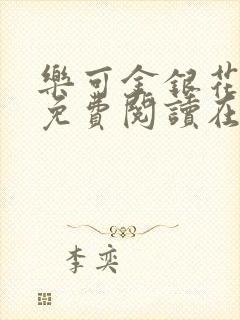 樂可金銀花
免費閱讀在
李奕